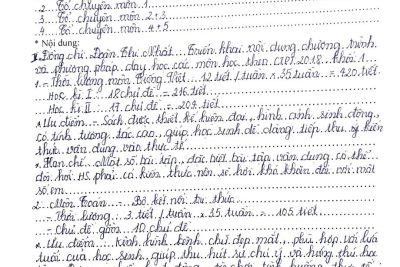 2. Tổ chuyên môn 1
3. Tổ chuyên môn 2+3
4. Tổ chuyên môn 4+5
* Nội dung:
1. Đồng chí Đoàn Thị Nhất. Triển khai nội dung chương trình
và phương pháp dạy học các môn học theo CTPT 2018. khối 1
1 - Thời lượng môn Tiếng Việt 12 tiết / tuần x 35 tuần = 420 tiết
Học kì I 18 chủ đề = 216 tiết
Học kì II 17 chủ đề = 204 tiết
* Ưu điểm - Sách được thiết kế hiện đại, hình ảnh sinh động,
có tính tương tác cao, giúp học sinh dễ dàng tiếp thu kiến
thức vận dụng vào thực tế
* Hạn chế. Một số bài tập, đặc biệt bài tập vận dụng có thể
đòi hỏi HS phải có kiến thức nên sẽ hơi khó khăn đối với một
số em
2. Môn Toán - Bộ kết nối tri thức
- Thời lượng 3 tiết / tuần x 35 tuần = 105 tiết
- Chủ đề gồm 10 chủ đề
* Ưu điểm kênh hình kênh chữ đẹp mắt, phù hợp với lứa
tuổi của học sinh, giúp thu hút sự chú ý và hứng thú học